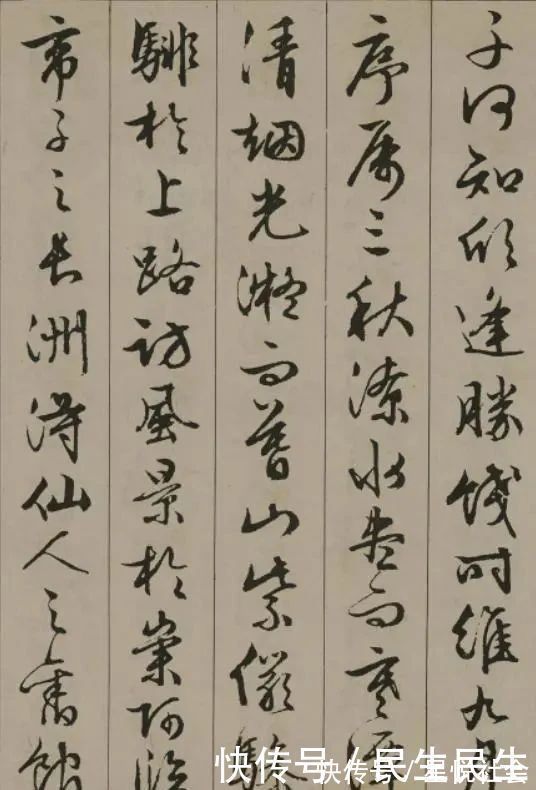 子何知欣逢勝餞时維九月
序属三秋潦水盡而寒潭
清烟光凝而暮山紫儼驂
騑於上路訪風景於崇阿臨
帝子之長洲得仙人之舊館
快传号 / 民生民生
快传号 /